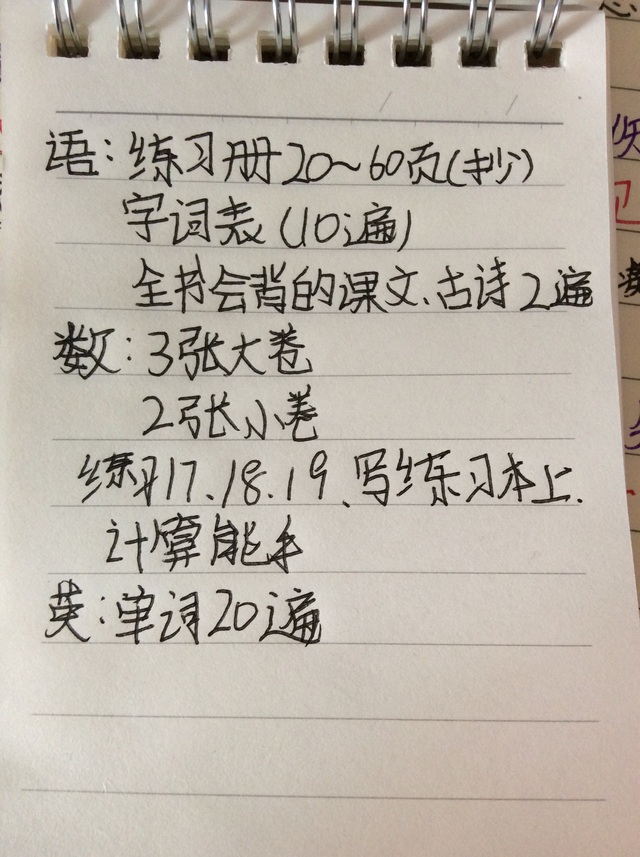 语：练习册20~60页(抄)
字词表(10遍)
全书会背的课文、古诗2遍
数：3张大卷
2张小卷
练习17.18.19、写练习本上.
计算能手
英：单词20遍